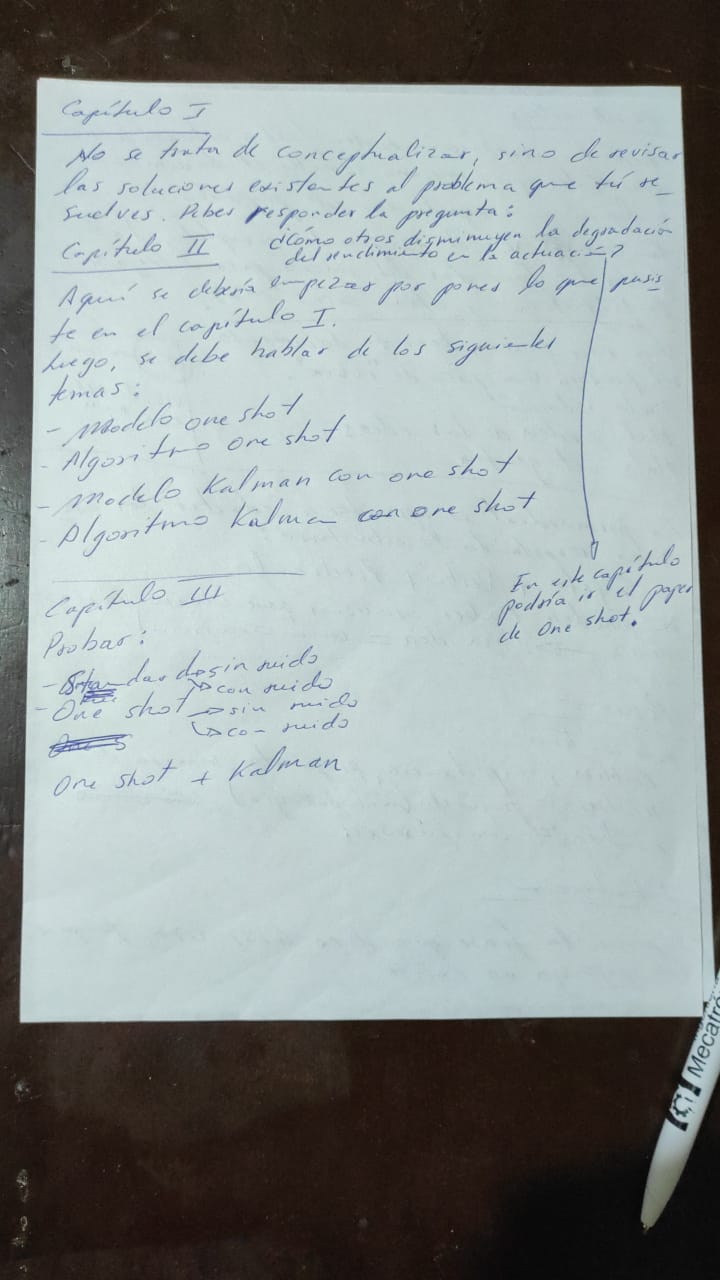 Capítulo I
No se trata de conceptualizar, sino de revisar
las soluciones existentes al problema que tú re-
suelves. Debes responder la pregunta:
¿Cómo otros disminuyen la degradación
del rendimiento en la actuación?
Capítulo II
Aquí se debería empezar por poner lo que pusis-
te en el capítulo I.
Luego, se debe hablar de los siguientes
temas:
- Modelo one shot
- Algoritmo one shot
- Modelo Kalman con one shot
- Algoritmo Kalman con one shot
En este capítulo
podría ir el paper
de One shot.
Capítulo III
Probar:
- Standar → sin ruido
→ con ruido
- One shot → sin ruido
→ con ruido
One shot + Kalman
Mecatró